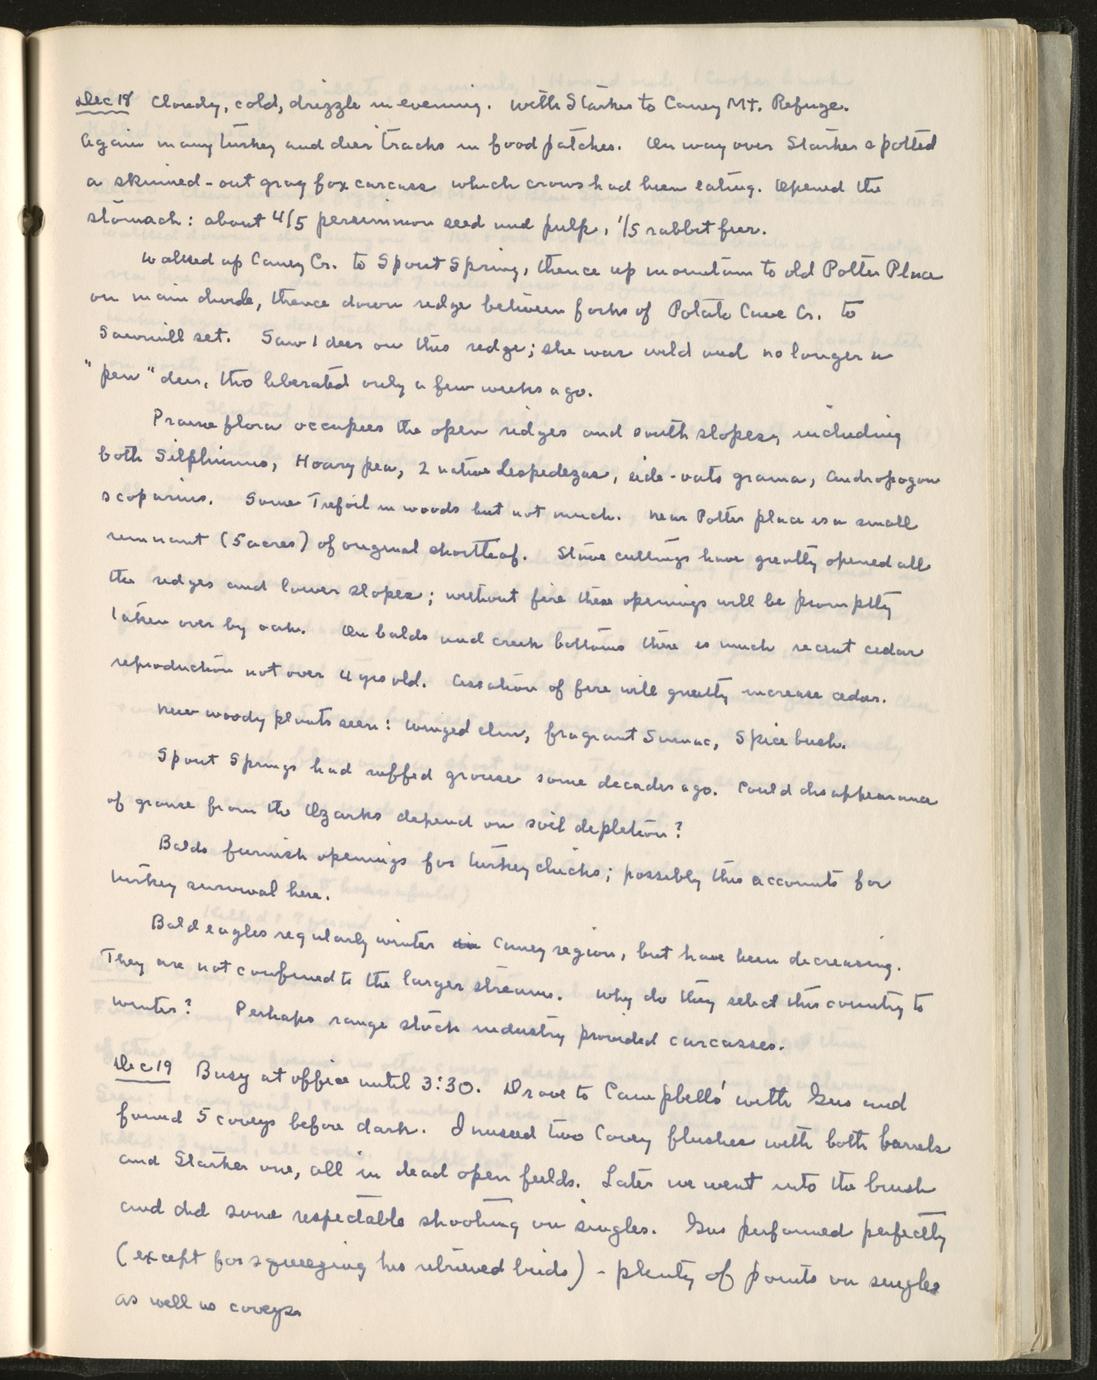 Dec 18 Cloudy, cold, drizzle in evening. With Starker to Caney Mt. Refuge.
Again many turkey and deer tracks in food patches. On way over Starker spotted
a skinned-out gray fox carcass which crows had been eating. Opened the
stomach: about 4/5 persimmon seed and pulp, 1/5 rabbit fur.
Walked up Caney Cr. to Spout Spring, thence up mountain to old Potter Place
on main divide, thence down ridge between forks of Potato Cave Cr. to
Sawmill set. Saw 1 deer on this ridge; she was wild and no longer a
"pen" deer, tho liberated only a few weeks ago.
Prairie flora occupies the open ridges and south slopes, including
both Silphiums, Hoary pea, 2 native Lespedezas, side-oats grama, Andropogon
scoparius. Some Trefoil in woods but not much. Near Potter place is a small
remnant (5 acres) of original shortleaf. Stave cuttings have greatly opened all
the ridges and lower slopes; without fire these openings will be promptly
taken over by oak. On balds and creek bottoms there is much recent cedar
reproduction not over 4 yrs old. Cessation of fire will greatly increase cedar.
New woody plants seen: winged elm, fragrant Sumac, Spice bush.
Spout Springs had ruffed grouse some decades ago. Could disappearance
of grouse from the Ozarks depend on soil depletion?
Balds furnish openings for turkey chicks; possibly this accounts for
turkey survival here.
Bald eagles regularly winter in Caney region, but have been decreasing.
They are not confined to the larger streams. Why do they select this country to
winter? Perhaps range stock industry provided carcasses.
Dec 19 Busy at office until 3:30. Drove to Campbells' with Gus and
found 5 coveys before dark. I missed two Covey flushes with both barrels
and Starker one, all in dead open fields. Later we went into the brush
and did some respectable shooting on singles. Gus performed perfectly
(except for squeezing his retrieved birds) - plenty of points on singles
as well as coveys.